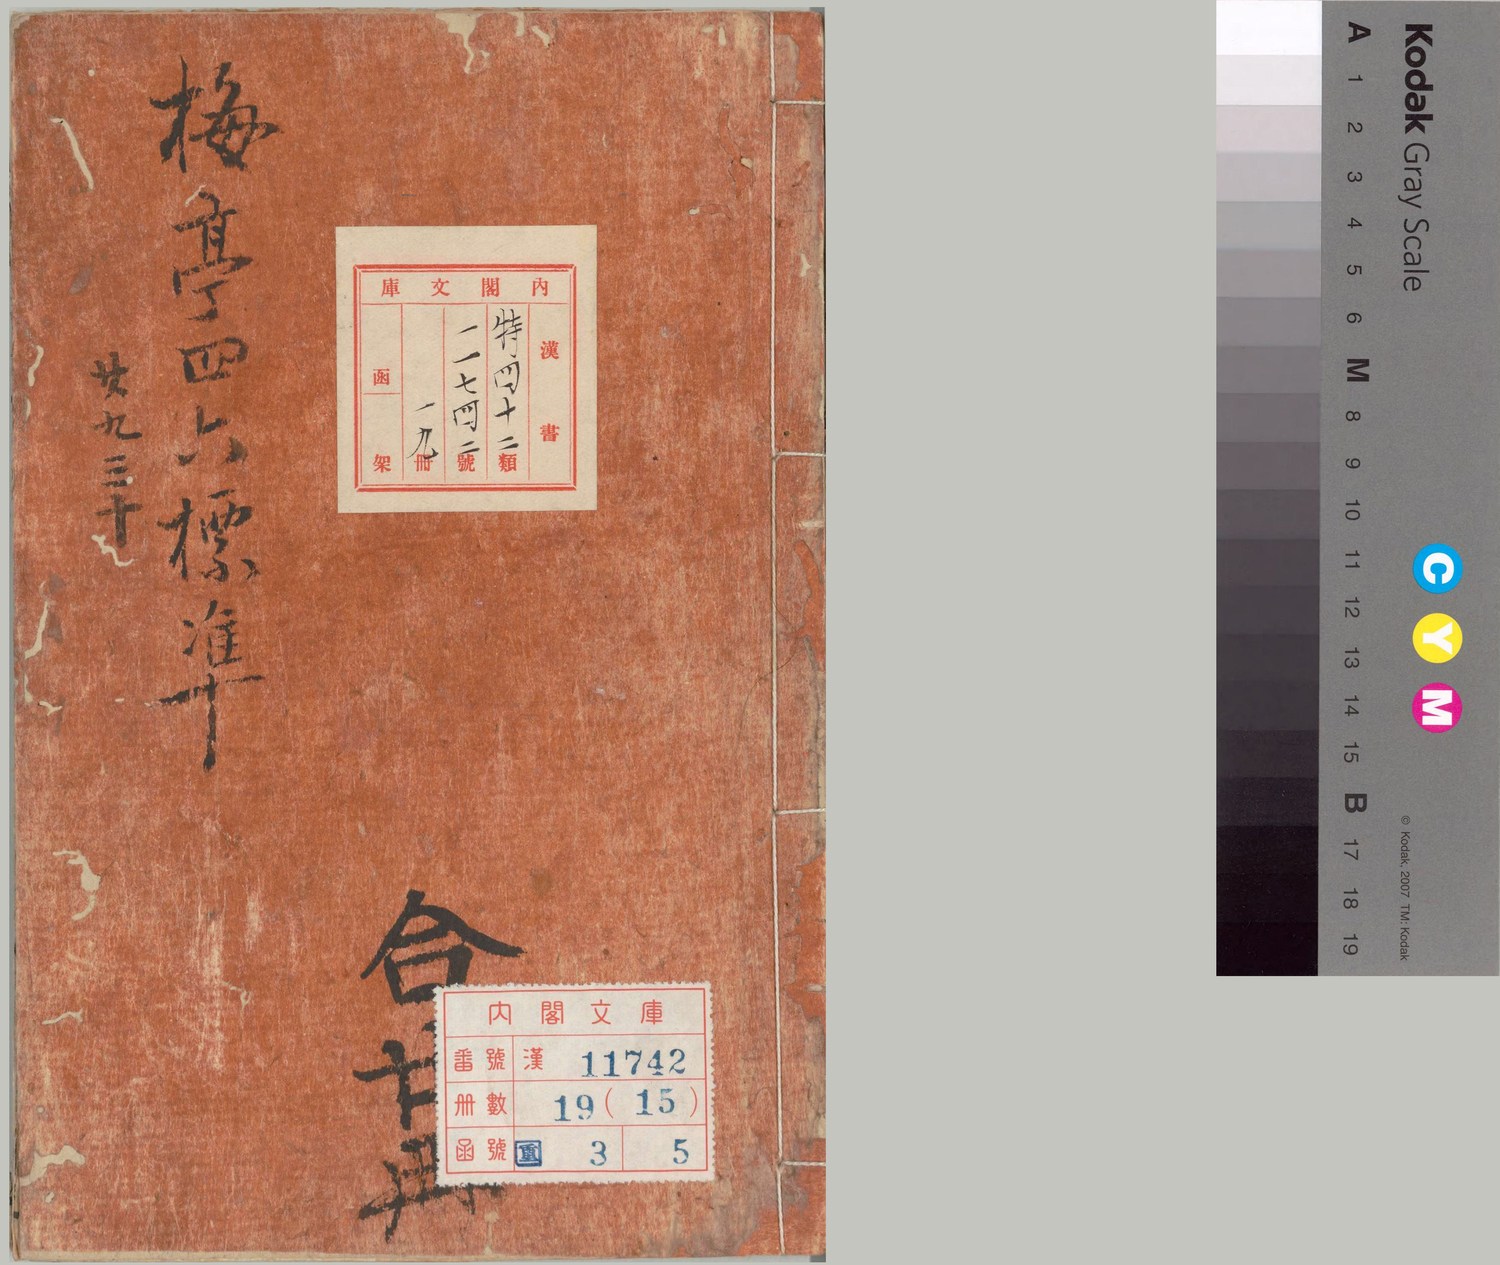 梅亭四六標準
廿九三十
內閣文庫
漢書
特四十二類
一一七四二號
一九冊
函
架
合
廿
冊
内閣文庫
番號 漢 11742
冊數 19(15)
函號 重 3 5
Kodak Gray Scale
A 1 2 3 4 5 6 M 8 9 10 11 12 13 14 15 B 17 18 19
C
Y
M
© Kodak, 2007 TM: Kodak